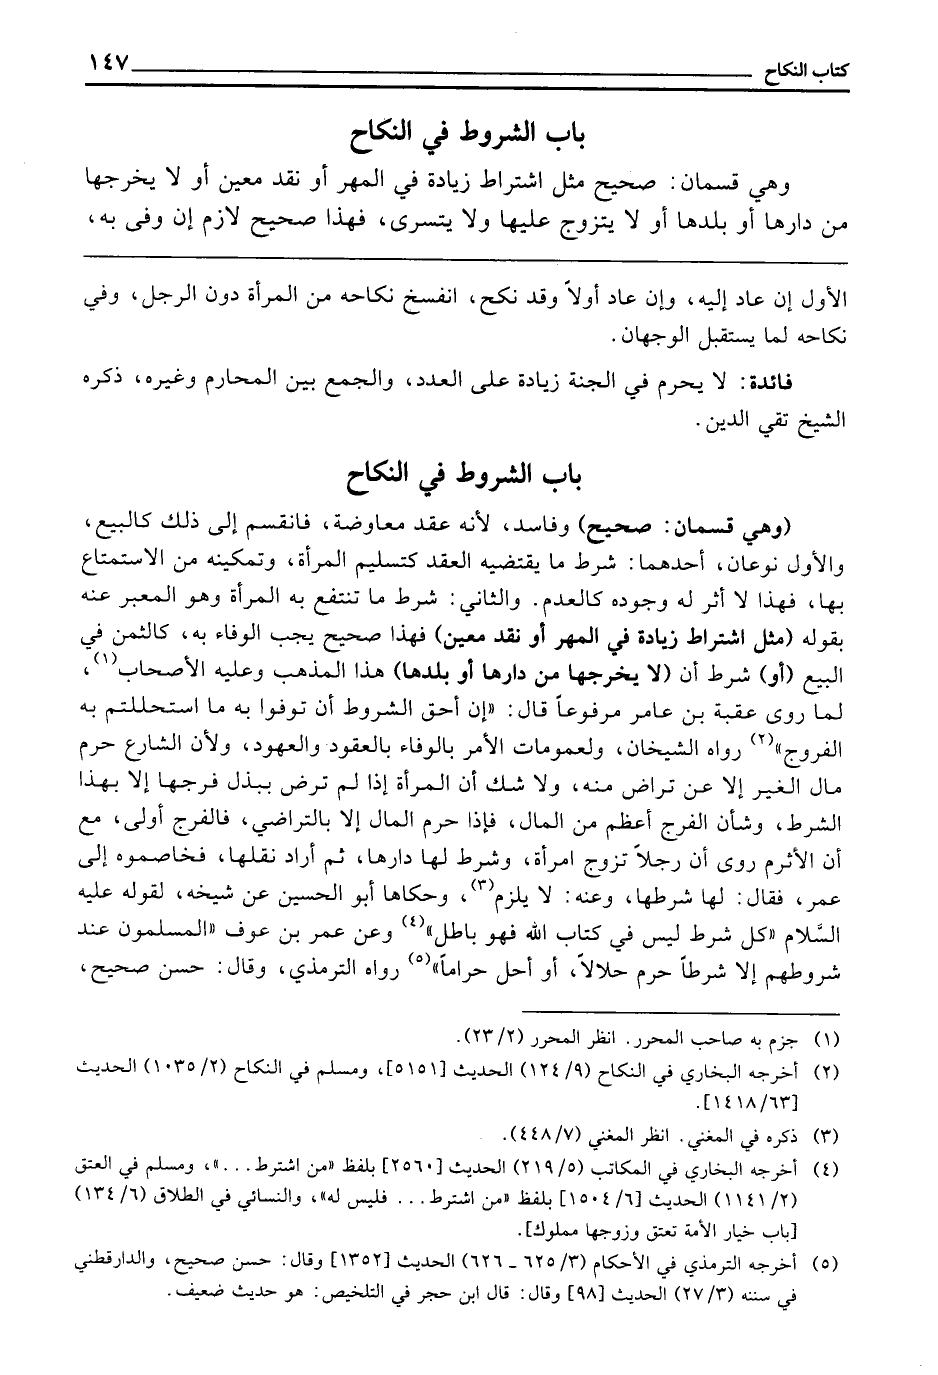 كتاب النكاح ١٤٧
باب الشروط في النكاح
وهي قسمان: صحيح مثل اشتراط زيادة في المهر أو نقد معين أو لا يخرجها
من دارها أو بلدها أو لا يتزوج عليها ولا يتسرى، فهذا صحيح لازم إن وفى به،
الأول إن عاد إليه، وإن عاد أولاً وقد نكح، انفسخ نكاحه من المرأة دون الرجل، وفي
نكاحه لما يستقبل الوجهان.
فائدة: لا يحرم في الجنة زيادة على العدد، والجمع بين المحارم وغيره، ذكره
الشيخ تقي الدين.
باب الشروط في النكاح
(وهي قسمان: صحيح) وفاسد، لأنه عقد معاوضة، فانقسم إلى ذلك كالبيع،
والأول نوعان، أحدهما: شرط ما يقتضيه العقد كتسليم المرأة، وتمكينه من الاستمتاع
بها، فهذا لا أثر له وجوده كالعدم. والثاني: شرط ما تنتفع به المرأة وهو المعبر عنه
بقوله (مثل اشتراط زيادة في المهر أو نقد معين) فهذا صحيح يجب الوفاء به، كالثمن في
البيع (أو) شرط أن (لا يخرجها من دارها أو بلدها) هذا المذهب وعليه الأصحاب(١)،
لما روى عقبة بن عامر مرفوعاً قال: «إن أحق الشروط أن توفوا به ما استحللتم به
الفروج»(٢) رواه الشيخان، ولعمومات الأمر بالوفاء بالعقود والعهود، ولأن الشارع حرم
مال الغير إلا عن تراض منه، ولا شك أن المرأة إذا لم ترض ببذل فرجها إلا بهذا
الشرط، وشأن الفرج أعظم من المال، فإذا حرم المال إلا بالتراضي، فالفرج أولى، مع
أن الأثرم روى أن رجلاً تزوج امرأة، وشرط لها دارها، ثم أراد نقلها، فخاصموه إلى
عمر، فقال: لها شرطها، وعنه: لا يلزم(٣)، وحكاها أبو الحسين عن شيخه، لقوله عليه
السَّلام «كل شرط ليس في كتاب الله فهو باطل»(٤) وعن عمر بن عوف «المسلمون عند
شروطهم إلا شرطاً حرم حلالاً، أو أحل حراماً»(٥) رواه الترمذي، وقال: حسن صحيح،
(١) جزم به صاحب المحرر. انظر المحرر (٢٣/٢).
(٢) أخرجه البخاري في النكاح (١٢٤/٩) الحديث [٥١٥١]، ومسلم في النكاح (١٠٣٥/٢) الحديث
[١٤١٨/٦٣].
(٣) ذكره في المغني. انظر المغني (٤٤٨/٧).
(٤) أخرجه البخاري في المكاتب (٢١٩/٥) الحديث [٢٥٦٠] بلفظ «من اشترط...»، ومسلم في العتق
(١١٤١/٢) الحديث [١٥٠٤/٦] بلفظ «من اشترط... فليس له»، والنسائي في الطلاق (١٣٤/٦)
[باب خيار الأمة تعتق وزوجها مملوك].
(٥) أخرجه الترمذي في الأحكام (٦٢٥/٣ ـ ٦٢٦) الحديث [١٣٥٢] وقال: حسن صحيح، والدارقطني
في سننه (٢٧/٣) الحديث [٩٨] وقال: قال ابن حجر في التلخيص: هو حديث ضعيف.